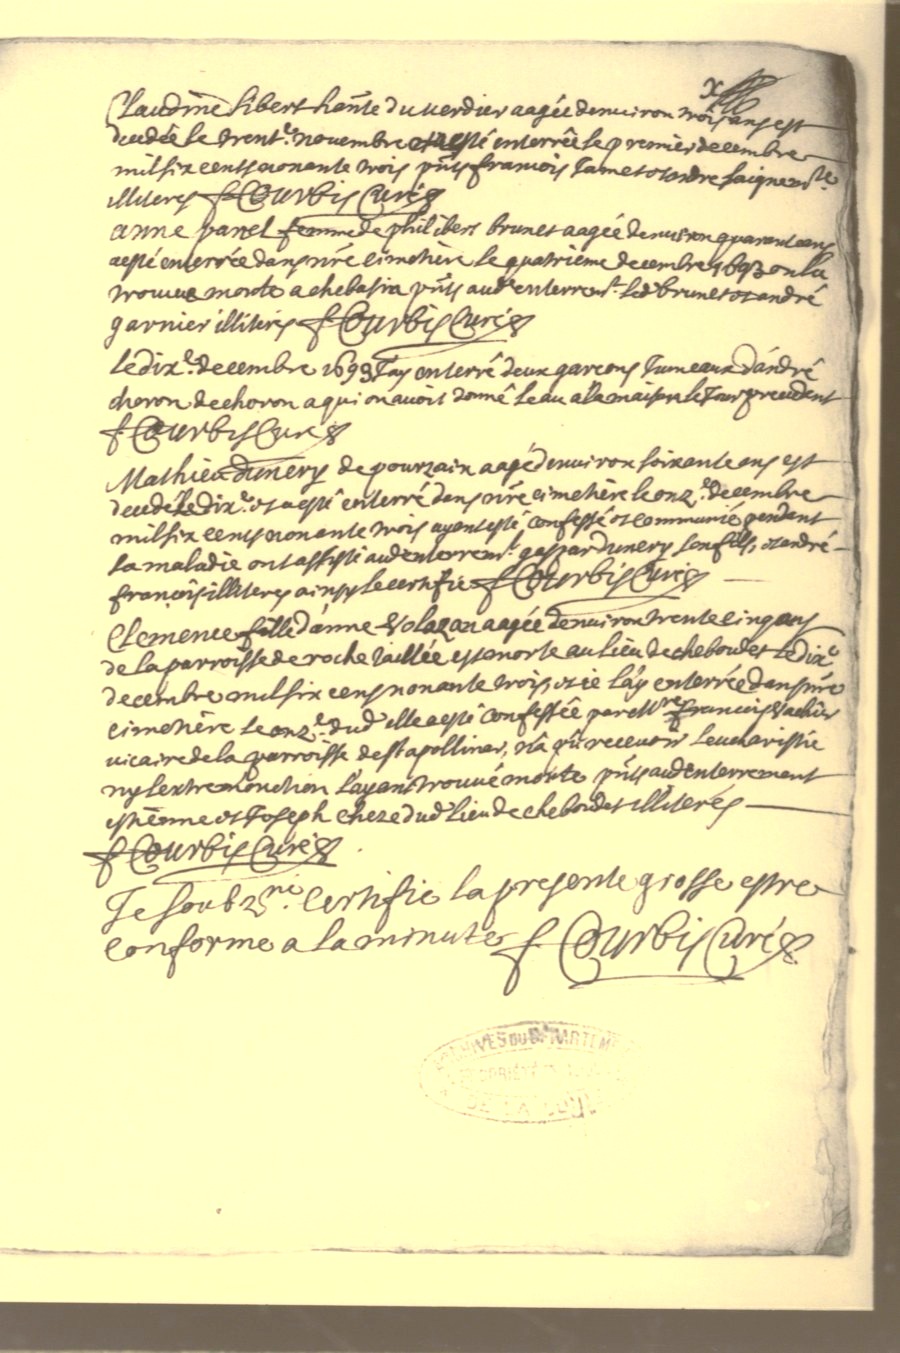 Claudine Libert hante du verdier aagée denuiron trois ans est
decedée le trent.e nouembre et a esté enterrée le premier decembre
mil six cents nonante trois pnts francois Jamet et andre
illiteres f Courbis Curé
anne panel femme de philibert brunet aagée denuiron quarante ans
a esté enterrée dans nre cimetière le quatrième decembre 1693 on la
trouuee morte a chebasira pnts aud enterremt. led brunet et andré
garnier illiterés f Courbis Curé
Le dix.e decembre 1693 Jay enterré deux garcons Jumeaux d'andré
choron de choron a qui on auoit donné leau a la maison le Jour precedent
f Courbis Curé
Mathieu dunery de pourzain aagé denuiron soixante ans est
decedé le dix.e et a esté enterré dans nre cimetière le onz.e decembre
mil six cents nonante trois ayant esté confessé et communié pendant
sa maladie ont assisté aud enterremt. gaspar dunery son fils, et andré
françois illiteres ainsy le certifie f Courbis Curé
Clemence fille d'anne Volazan aagée denuiron trente cinq ans
de la parroisse de roche taillée est morte au lieu de cheboudet le dix.e
decembre mil six cens nonante trois, et ie l'ay enterrée dans nre
cimetière le onz.e dud elle a esté confessée par Mre francois Vachier
vicaire de la parroisse de st apollinar, n'a pû receuoir leucharistie
ny lextremonction l'ayant trouué morte pnts aud enterrement
estienne et Joseph Cheze dud lieu de cheboudet illiterés
f Courbis Curé
Je soubzné. Certifie la presente grosse estre
conforme a la minute f Courbis Curé
ARCHIVES DU DÉPARTEMENT
DE LA